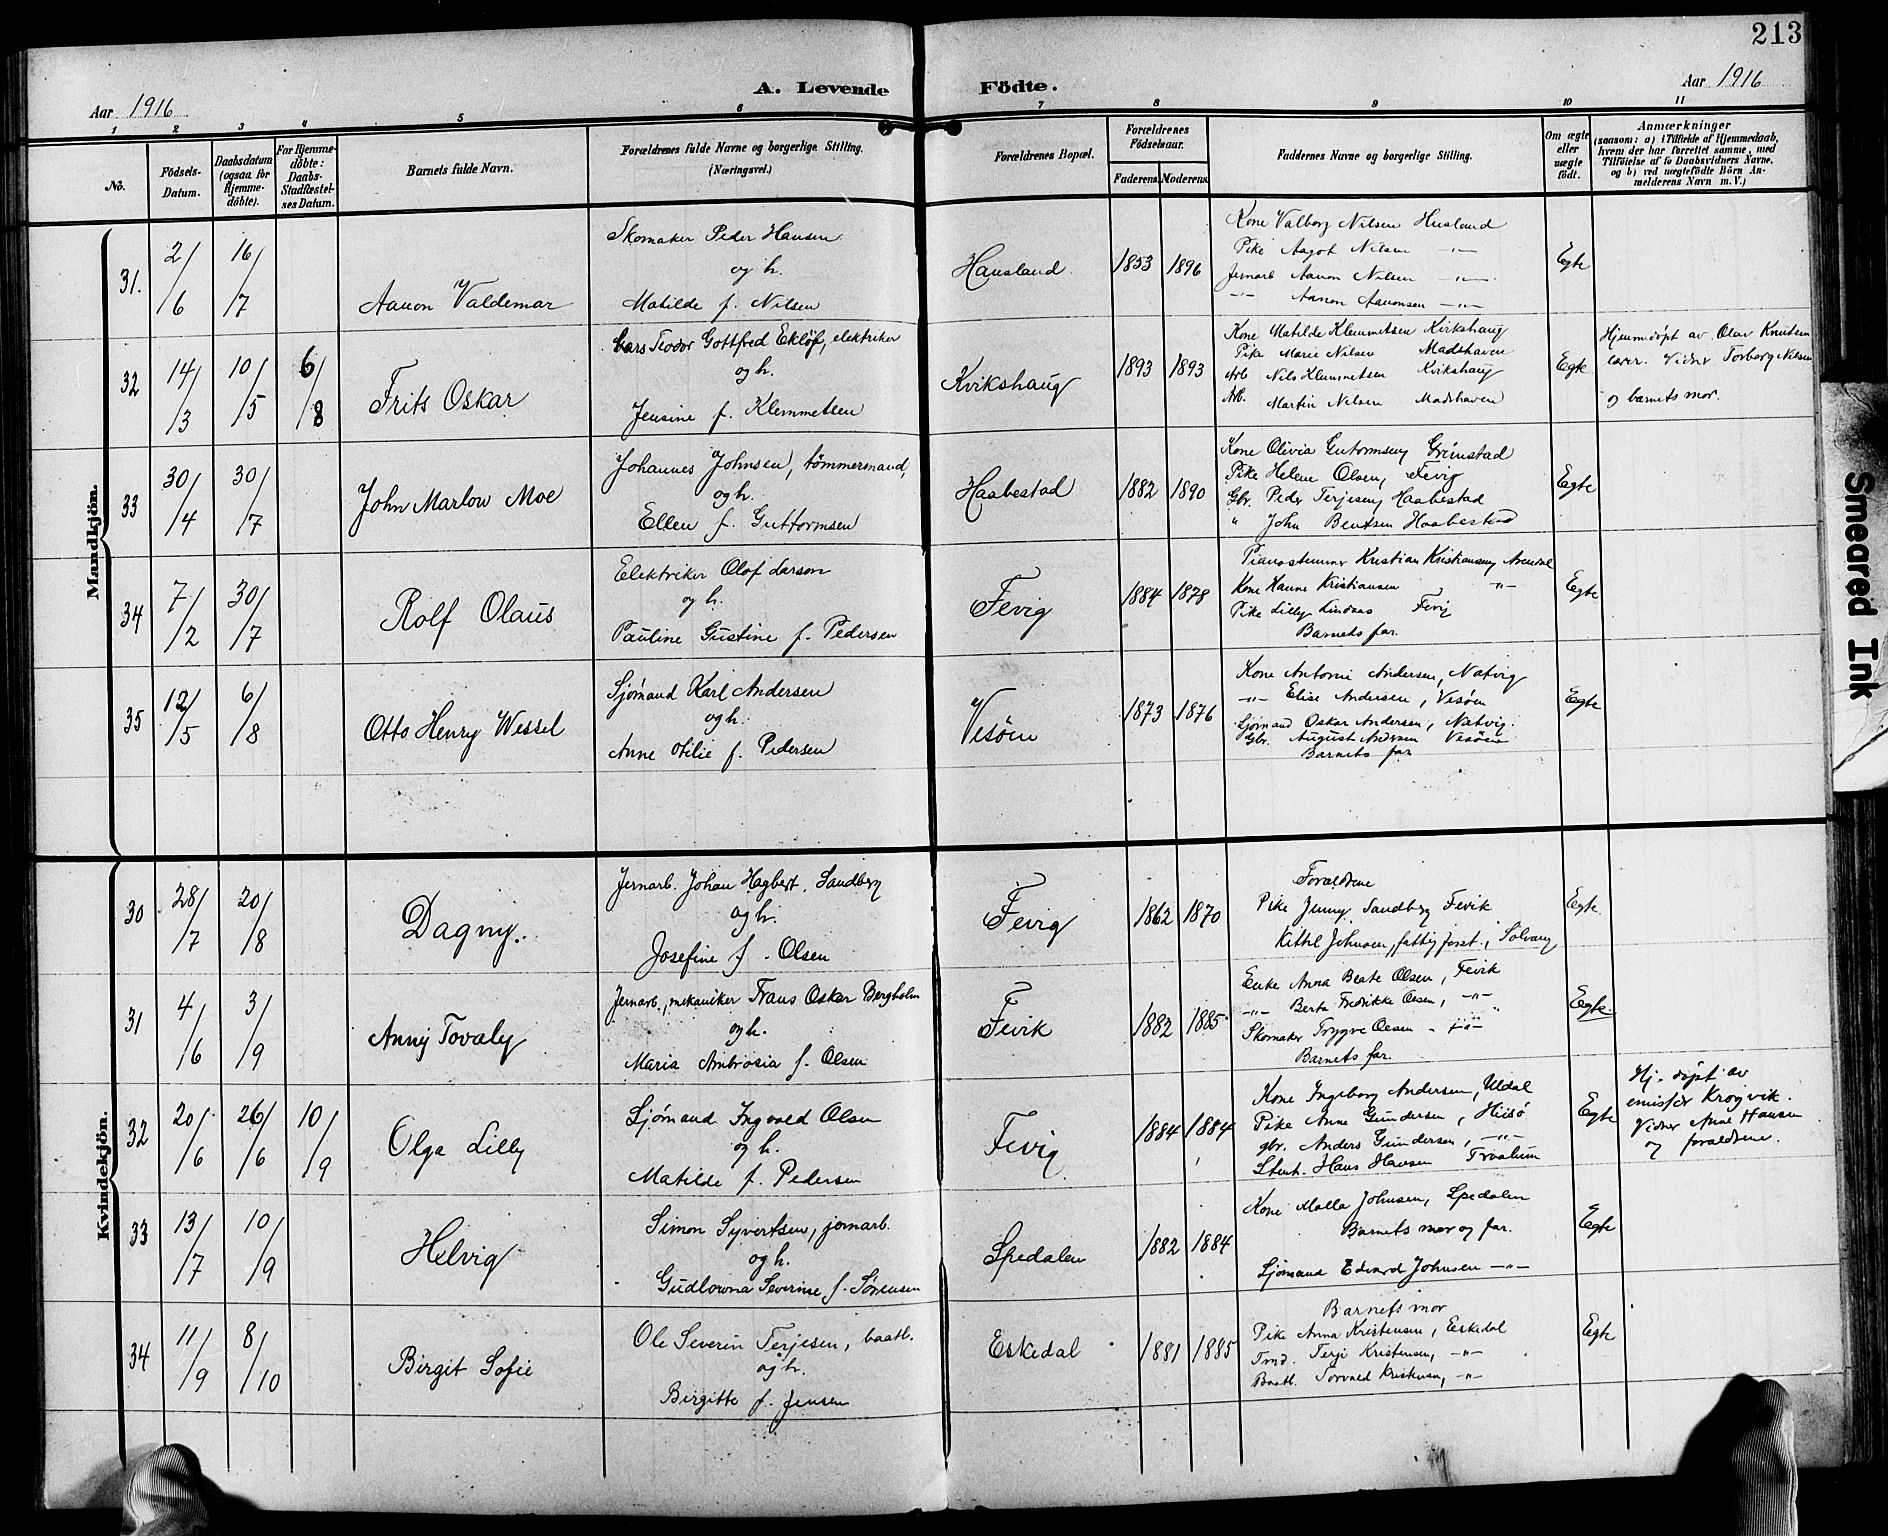 213
A. Levende Födte.
Aar 1916
Aar 1916
1 2 3 4 5 6 7 8 9 10 11
No.
Födsels-Datum.
Daabsdatum (ogsaa for Hjemme-döbte).
For Hjemme-döbte: Daabs-Stadfæstel-ses Datum.
Barnets fulde Navn.
Forældrenes fulde Navne og borgerlige Stilling.
(Næringsvei.)
Forældrenes Bopæl.
Forældrenes Födselsaar.
Faderens. Moderens.
Faddernes Navne og borgerlige Stilling.
Om ægte eller uægte födt.
Anmærkninger
(saasom: a) i Tilfælde af Hjemmedaab, hvem der har forrettet samme, med Tilföielse af to Daabsvidners Navne, og b) ved uægtefödte Börn An-melderens Navn m. V.)
Mandkjön.
31. 2/6 16/7 Aanon Valdemar
Skomaker Peder Hansen
og h.
Matilde f. Nilsen
Hausland 1853 1896
Kone Valborg Nilsen Husland
Pike Aagot Nilsen -"-
Jernarb Aanon Nilsen -"-
-"- Aanon Aanonsen -"-
Egte
32 14/3 10/5 6/8 Frits Oskar
Lars Teodor Gottfred Eklöf, elektriker
og h.
Jensine f. Klemmetsen
Kvikshaug 1893 1893
Kone Matilde Klemmetsen Kvikshaug
Pike Marie Nilsen Madshaven
Arb Nils Klemmetsen Kvikshaug
Arb. Martin Nilsen Madshaven
Egte
Hjemmedøpt av Olav Knutsen
lærer. Vidner Torborg Nilsen
og barnets mor.
33 30/4 30/7 John Marlow Moe
Johannes Johnsen, tömmermand,
og h.
Ellen f. Guttormsen
Haabestad 1882 1890
Kone Olivia Gutormsen, Grimstad
Pike Helene Olsen, Fevig
Gbr. Peder Terjesen, Haabestad
" John Bentsen Haabestad
Egte
34 7/2 30/7 Rolf Olaus
Elektriker Olof Larson
og h.
Pauline Gustine f. Pedersen
Fevig 1884 1878
Pianostemmer Kristian Kristiansen, Arendal
Kone Hanne Kristiansen -"-
Pike Lilly Lindaas Fevig
Barnets far.
Egte
35 12/5 6/8 Otto Henry Wessel
Sjømand Karl Andersen
og h.
Anne Otilie f. Pedersen
Vesøen 1873 1876
Kone Antonie Andersen, Natvig
-"- Elise Andersen, Vesøen
Sjømand Oskar Andersen, Natvig.
Gbr. August Andersen Vesøen
Barnets far
Egte
Kvindekjön.
30 28/7 20/8 Dagny.
Jernarb. Johan Hagbert. Sandberg
og h.
Josefine f. Olsen
Fevig 1862 1870
Forældrene
Pike Jenny Sandberg Fevik
Kittil Johnsen, fattigforst., Solvang
Egte
31 4/6 3/9 Anny Tovaly
Jernarb., mekaniker Frans Oskar Bergholm
og h.
Maria Ambrosia f. Olsen
Fevik 1882 1885
Enke Anna Beate Olsen, Fevik
-"- Berta Fredrikke Olsen, -"-
Skomaker Trygve Olsen -"-
Barnets far.
Egte
32 20/6 26/6 10/9 Olga Lilly
Sjømand Ingvald Olsen
og h.
Matilde f. Pedersen
Fevig 1884 1884
Kone Ingeborg Andersen, Uldal
Pike Anne Gundersen, Hisö
gbr. Anders Gundersen, -"-
Hans Hansen
Egte
Hj. döpt av
emissær Krogvik.
Vidner Anne Hansen
og forældrene.
33 13/7 10/9 Helvig
Simon Syvertsen, jernarb.
og h.
Gudlowna Severine f. Sørensen
Spedalen 1882 1884
Kone Malla Johnsen, Spedalen
Barnets mor og far.
Sjømand Edvard Johnsen -"-
Egte
34 11/9 8/10 Birgit Sofie
Ole Severin Terjesen, baatb.
og h.
Birgitte f. Jensen
Eskedal 1881 1885
Barnets mor
Pike Anna Kristensen, Eskedal
Tmd. Terje Kristensen, -"-
Baatb. Torvald Kristensen, -"-
Egte
Smeared Ink